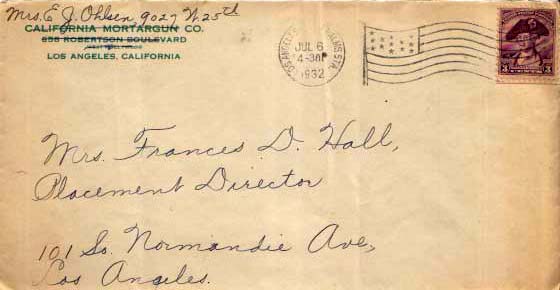 Mrs. E J. Ohlsen, 9027 W. 25th
CALIFORNIA MORTARGUN CO.
858 ROBERTSON BOULEVARD
LOS ANGELES, CALIFORNIA
LOS ANGELES
JUL 6
4-30P
1932
3 3
Mrs. Frances D. Hall,
Placement Director
101 So. Normandie Ave,
Los Angeles.